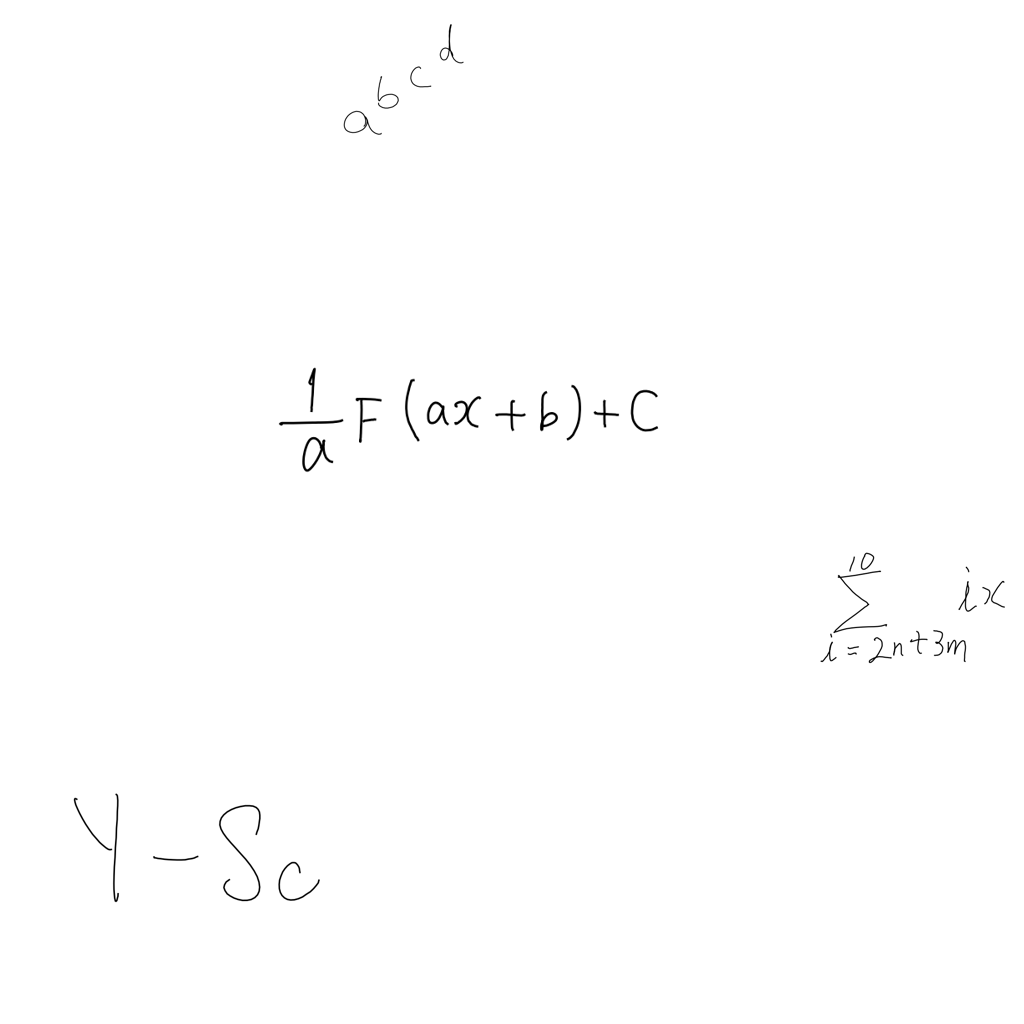 a^{b^{c^{d}}}
\frac{1}{a}F(ax+b)+C
\sum_{i=2n+3m}^{10} ix
Y-S_{c}